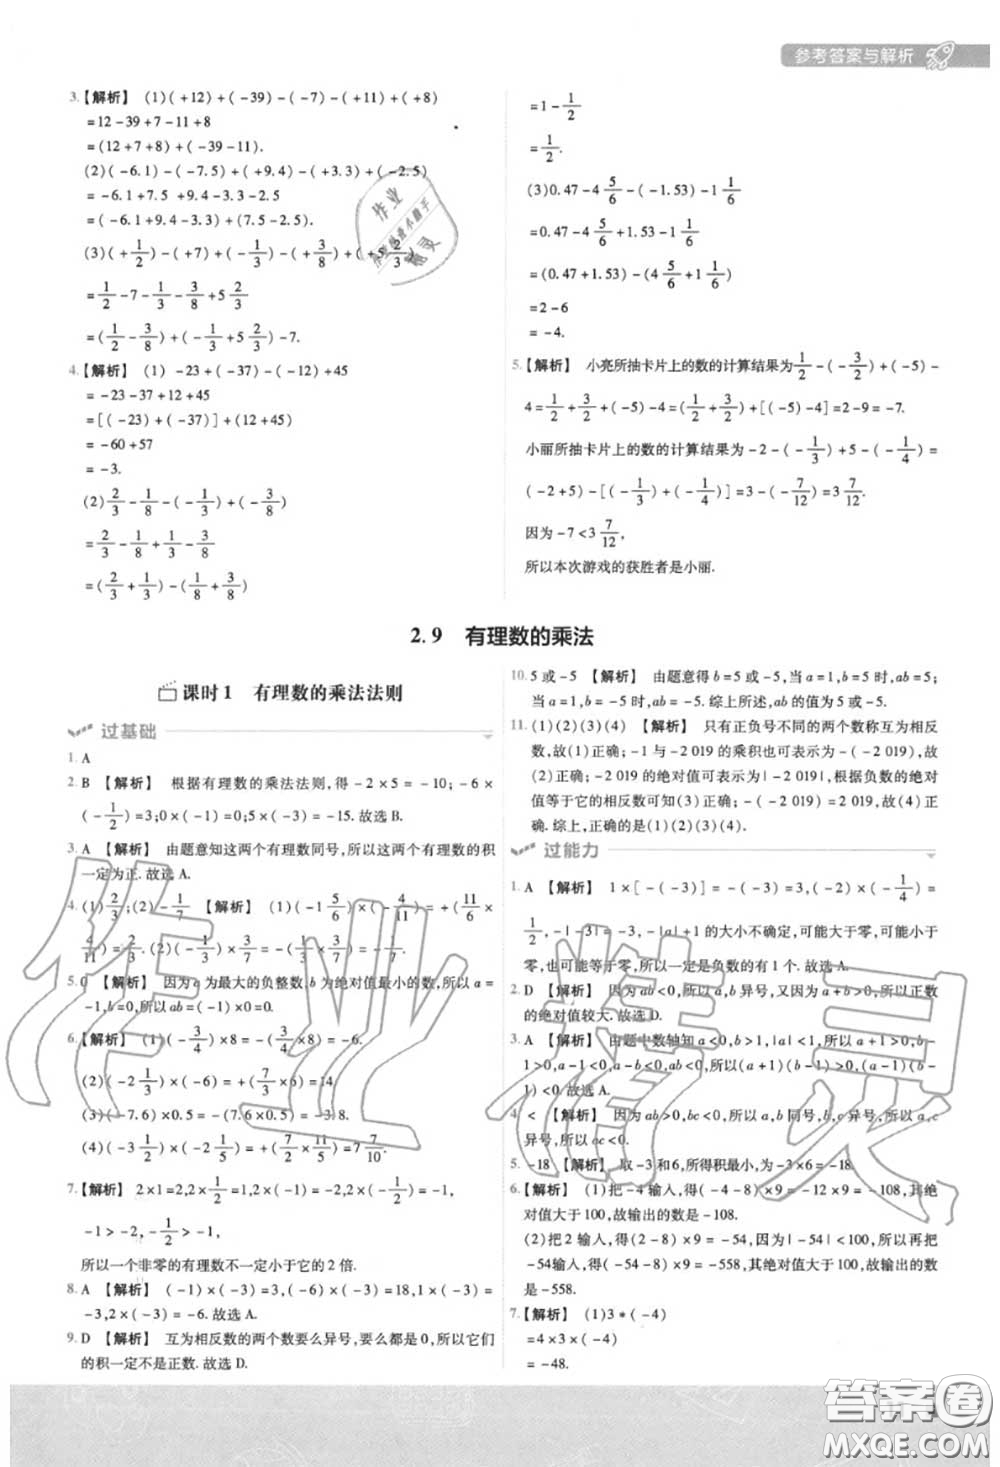 参考答案与解析
3.【解析】 (1)(+12)+(-39)-(-7)-(+11)+(+8)
=12-39+7-11+8
=(12+7+8)+(-39-11).
(2)(-6.1)-(-7.5)+(+9.4)-(+3.6)+(-2.5)
=-6.1+7.5+9.4-3.6-2.5
=(-6.1+9.4-3.6)+(7.5-2.5).
(3)(+1/2)-(+7)+(-1/3)-(+3/8)+(+5 2/3)
=1/2-7-1/3-3/8+5 2/3
=(1/2-3/8)+(-1/3+5 2/3)-7.
4.【解析】 (1) -23+(-37)-(-12)+45
=-23-37+12+45
=[(-23)+(-37)]+(12+45)
=-60+57
=-3.
(2)2/3-1/8-(-1/3)+(-3/8)
=2/3-1/8+1/3-3/8
=(2/3+1/3)-(1/8+3/8)
=1-1/2
=1/2.
(3)0.47-4 5/6-(-1.53)-1 1/6
=0.47-4 5/6+1.53-1 1/6
=(0.47+1.53)-(4 5/6+1 1/6)
=2-6
=-4.
5.【解析】 小亮所抽卡片上的数的计算结果为1/2-(-3/2)+(-5)-
4=1/2+3/2+(-5)-4=(1/2+3/2)+[(-5)-4]=2-9=-7.
小丽所抽卡片上的数的计算结果为-2-(-1/3)+5-(-1/4)=
(-2+5)-[(-1/3)+(-1/4)]=3-(-7/12)=3 7/12.
因为-7<3 7/12,
所以本次游戏的获胜者是小丽.
2.9 有理数的乘法
课时1 有理数的乘法法则
过基础
1. A
2. B 【解析】 根据有理数的乘法法则,得-2×5=-10;-6×
(-1/2)=3;0×(-1)=0;5×(-3)=-15.故选B.
3. A 【解析】 由题意知这两个有理数同号,所以这两个有理数的积
一定为正.故选A.
4.(1)2/3;(2)-1/7 【解析】 (1)(-1 5/6)×(-4/11)=+(11/6×
4/11)=2/3.(2)(-1/3)×3/7=-(1/3×3/7)=-1/7.
5.0 【解析】 因为a为最大的负整数,b为绝对值最小的数,所以a=
-1,b=0,所以ab=(-1)×0=0.
6.【解析】 (1)(-3/4)×8=-(3/4×8)=-6.
(2)(-2 1/3)×(-6)=+(7/3×6)=14.
(3)(-7.6)×0.5=-(7.6×0.5)=-3.8.
(4)(-3 1/2)×(-2 1/5)=+(7/2×11/5)=7 7/10.
7.【解析】 2×1=2,2×1/2=1,2×(-1)=-2,2×(-1/2)=-1,
-1>-2,-1/2>-1,
所以一个非零的有理数不一定小于它的2倍.
8. A 【解析】 (-1)×(-3)=3,(-6)×(-3)=18,1×(-3)=
-3,2×(-3)=-6.故选A.
9. D 【解析】 互为相反数的两个数要么异号,要么都是0,所以它们
的积一定不是正数.故选D.
10.5或-5 【解析】 由题意得b=5;当a=1,b=5时,ab=5;
当a=-1,b=5时,ab=-5.综上所述,ab的值为5或-5.
11.(1)(2)(3)(4) 【解析】 只有正负号不同的两个数称互为相反
数,故(1)正确;-1与-2 019的乘积也可表示为-(-2 019),故
(2)正确;-2 019的绝对值可表示为|-2 019|,根据负数的绝对
值等于它的相反数可知(3)正确,|-2 019|=-(-2 019),故(4)正
确.综上,正确的是(1)(2)(3)(4).
过能力
1. A 【解析】 1×[-(-3)]=-(-3)=3,(-2)×(-1/4)=
1/2,-|-3|=-3,-|a|+1的大小不确定,可能大于零,可能小于
零,也可能等于零,所以一定是负数的有1个.故选A.
2. D 【解析】 因为ab<0,所以a,b异号,又因为a+b>0,所以正数
的绝对值较大.故选D.
3. A 【解析】 由题中数轴知a<0,b>1,|a|<1,所以a+1>0,b-
1>0,a-1<0,所以(a+1)(b-1)>0,(a-1)(b-
1)<0.故选A.
4. < 【解析】 因为ab>0,bc<0,所以a,b同号,b,c异号,所以a,c
异号,所以ac<0.
5. -18 【解析】 取-3和6,所得积最小,为-3×6=-18.
6.【解析】 (1)把-4输入,得(-4-8)×9=-12×9=-108,其绝
对值大于100,故输出的数是-108.
(2)把2输入,得(2-8)×9=-6×9=-54,因为绝对值小于100,把
-54输入,得(-54-8)×9=-62×9=-558,绝对值大于100,故输出的数
是-558.
7.【解析】 (1)3*(-4)
=4×3×(-4)
=-48.
作业精灵
答案圈
MXQE.COM